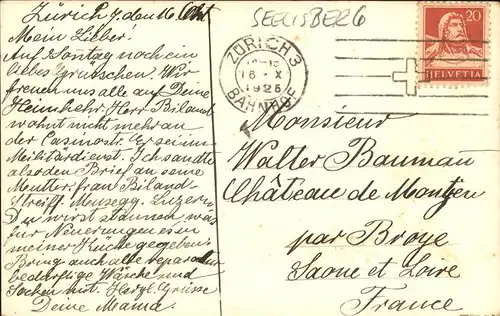 Zürich, den 16. Okt.
Mein Lieber!
Auf Sonntag noch ein
liebes Grüsschen. Wir
freuen uns alle auf Deine
Heimkehr. Herr Biland
wohnt nicht mehr an
der Casinostr. Er sei im
Militärdienst. Ich sandte
also den Brief an seine
Mutter: frau Biland-
Streiff. Musegg. Luzern.
Du wirst staunen, was
für Neuerungen es in
meiner Küche gegeben.
Bring auch alle reparatur
bedürftige Wäsche und
Socken mit. Herzl. Grüsse
Deine Mama.
SEELISBERG
ZÜRICH 3
16 X
1925
BAHNHOF
20
HELVETIA
Monsieur
Walter Bauman
Château de
par Broye
Saone et Loire
France